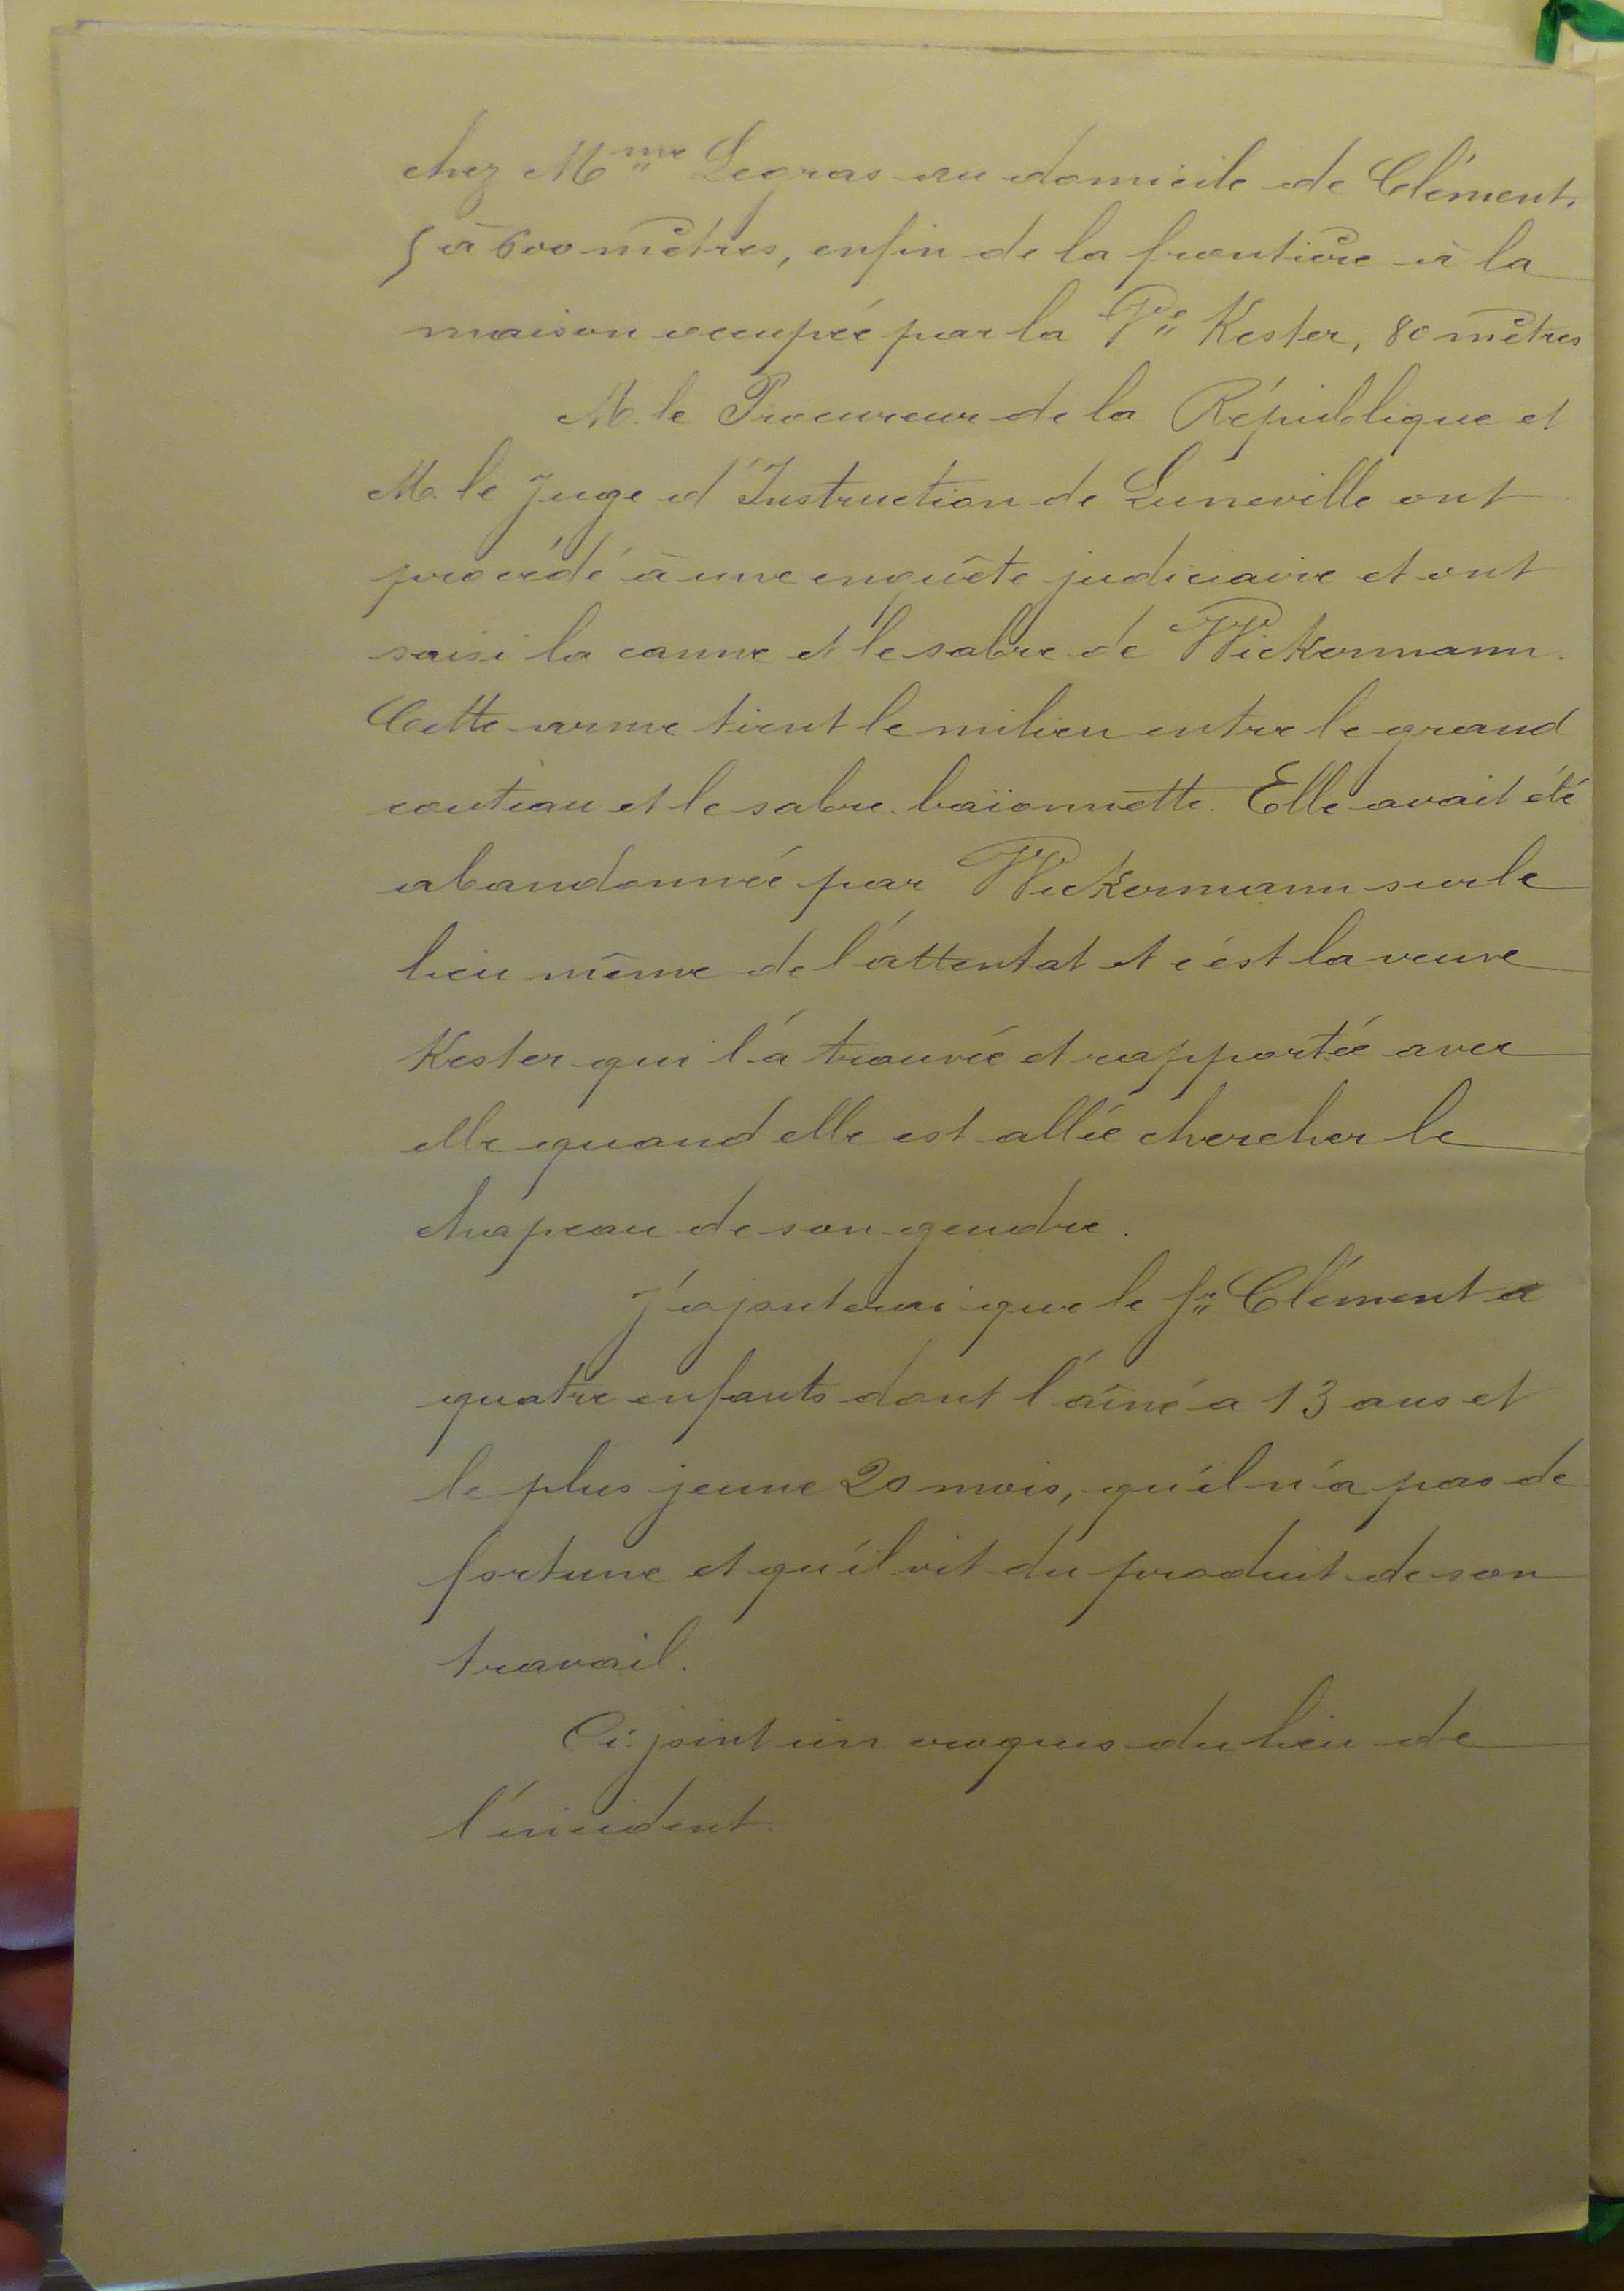 chez M^me Legras au domicile de Clément,
5 à 600 mètres, enfin de la frontière à la
maison occupée par la V^ve Kester, 80 mètres
M. le Procureur de la République et
M. le Juge d'Instruction de Luneville ont
procédé à une enquête judiciaire et ont
saisi la canne et le sabre de Wickermann.
Cette arme tient le milieu entre le grand
couteau et le sabre-baïonnette. Elle avait été
abandonnée par Wickermann sur le
lieu même de l'attentat et c'est la veuve
Kester qui l'a trouvée et rapportée avec
elle quand elle est allée chercher le
chapeau de son gendre.
J'ajouterai que le s^r Clément a
quatre enfants dont l'aîné a 13 ans et
le plus jeune 20 mois, qu'il n'a pas de
fortune et qu'il vit du produit de son
travail.
Ci-joint un croquis du lieu de
l'incident.